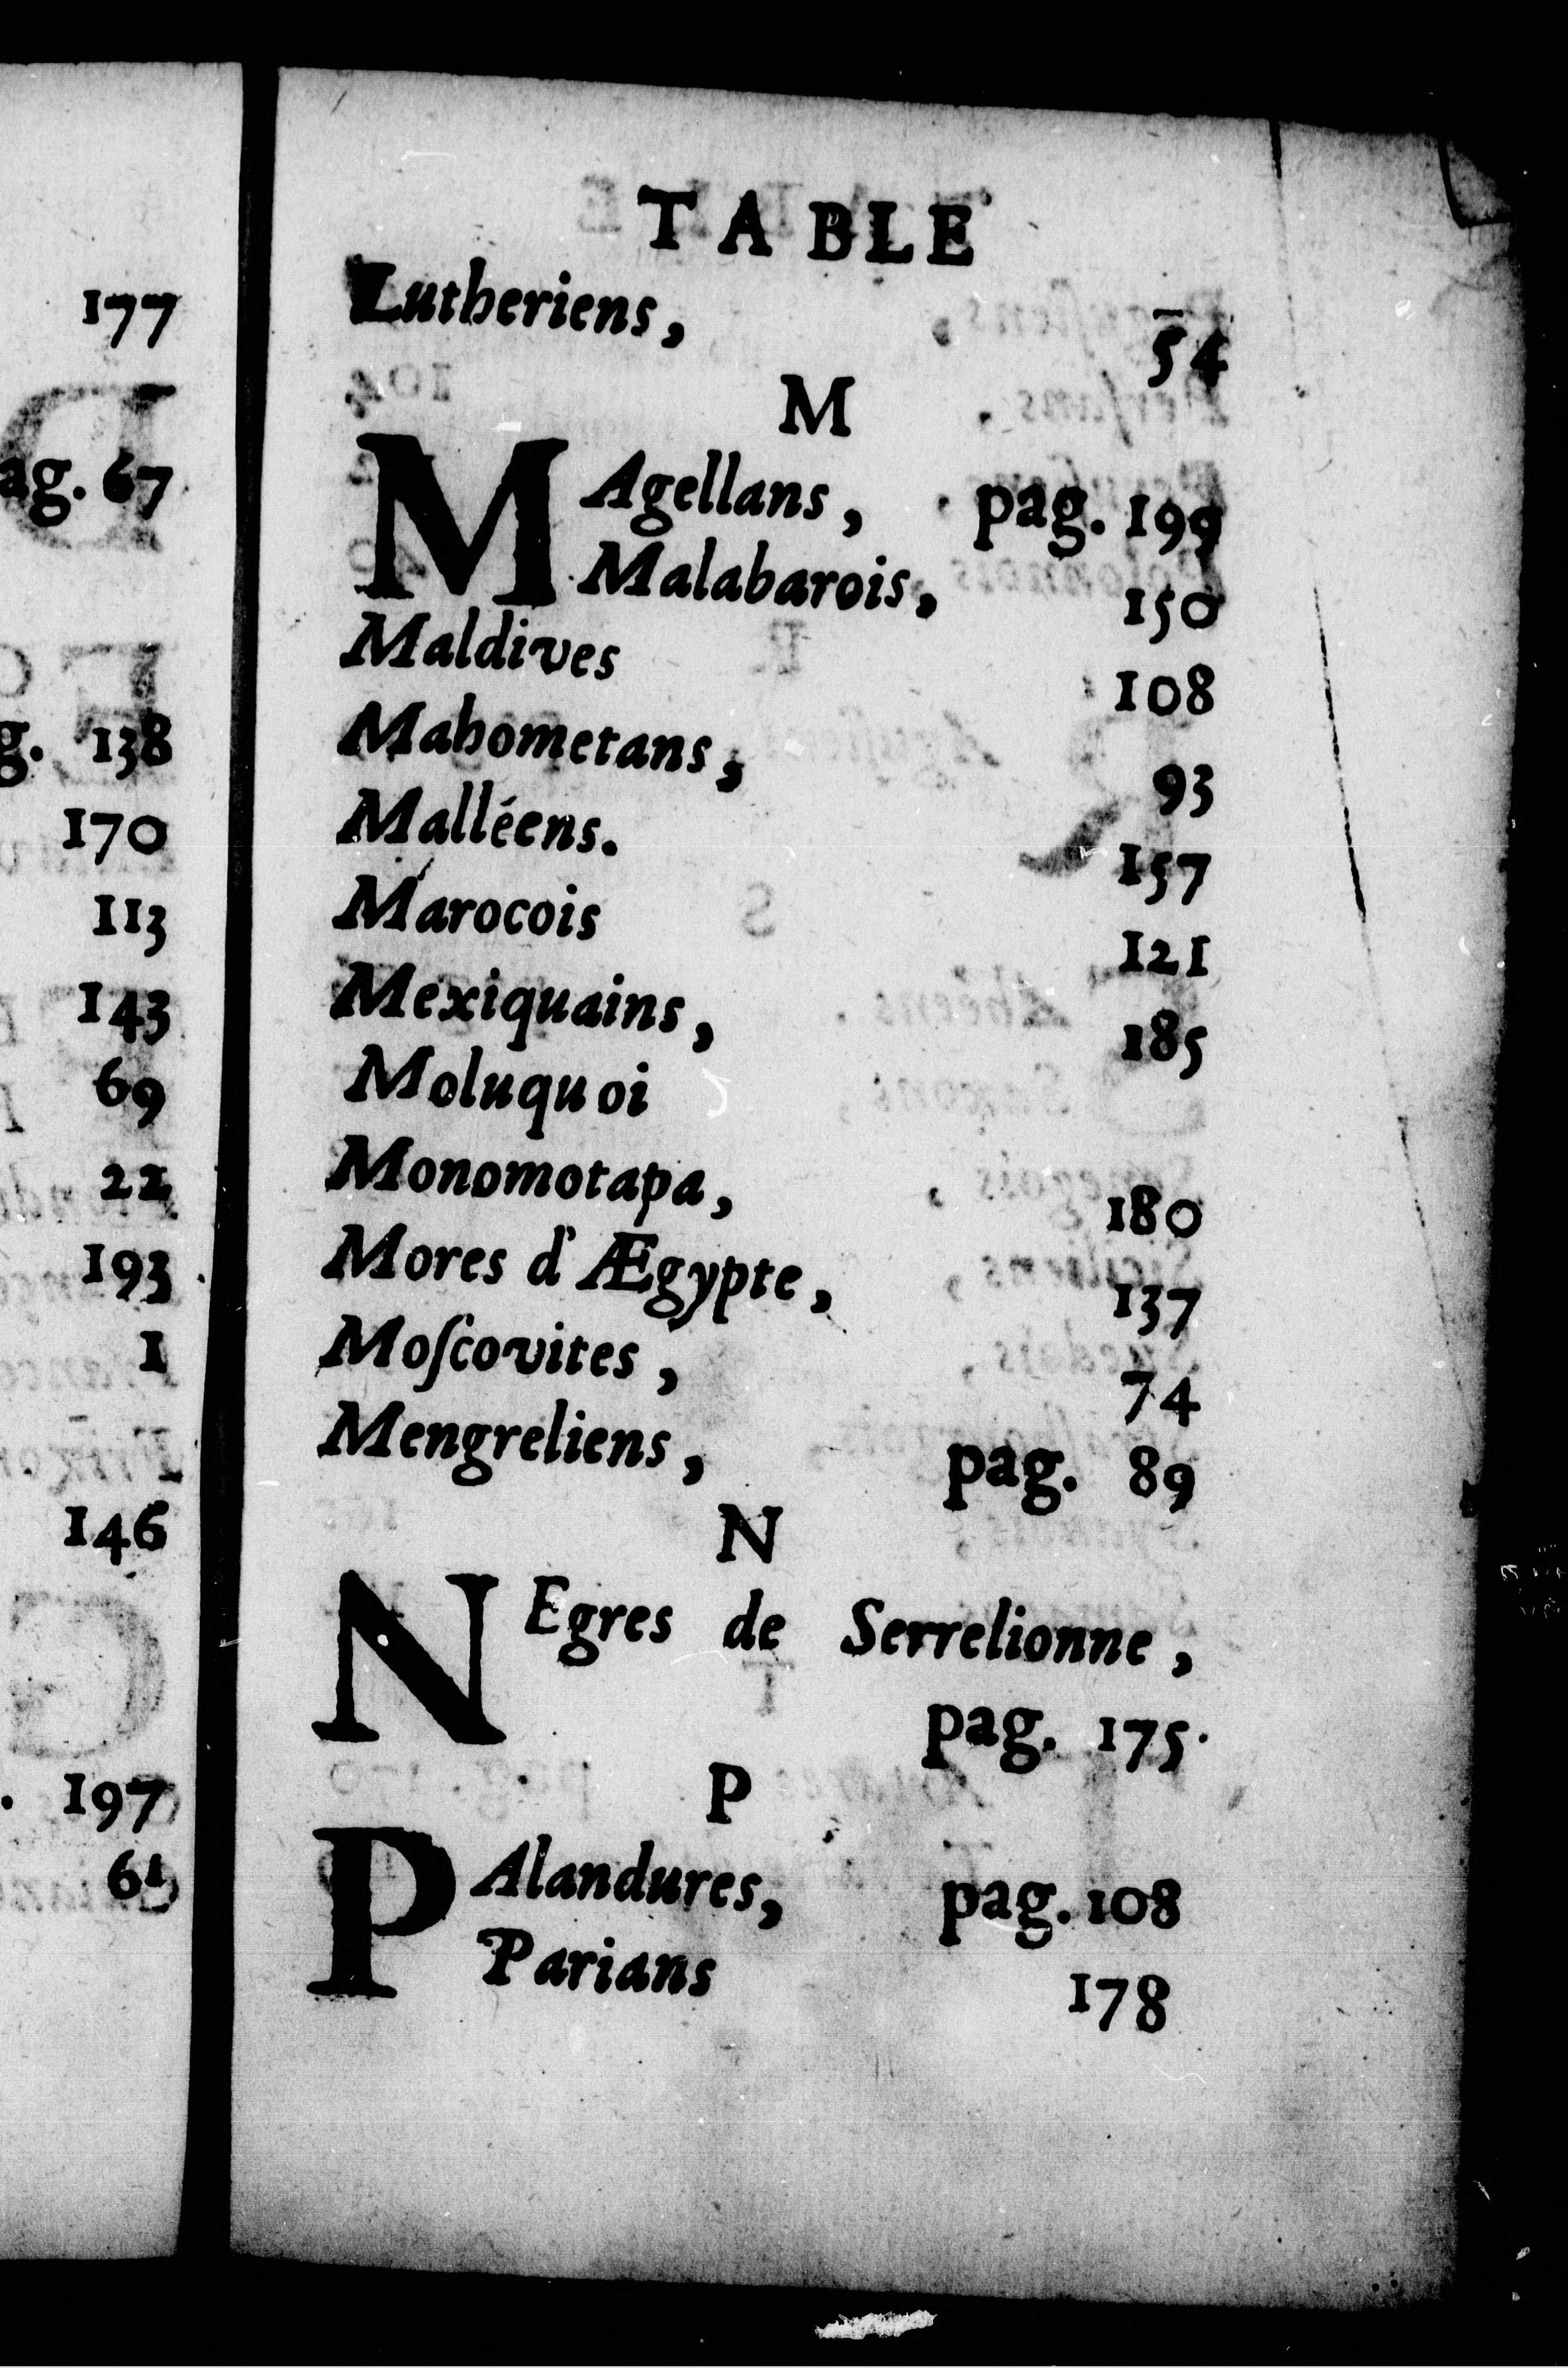 177
ag. 67
g. 138
170
113
143
69
22
193
1
146
. 197
61
TABLE
Lutheriens, 54
M
MAgellans, pag. 199
Malabarois, 150
Maldives 108
Mahometans, 93
Malléens. 157
Marocois 121
Mexiquains, 185
Moluquoi
Monomotapa, 180
Mores d'Ægypte, 137
Moſcovites, 74
Mengreliens, pag. 89
N
NEgres de Serrelionne,
pag. 175.
P
PAlandures, pag. 108
Parians 178